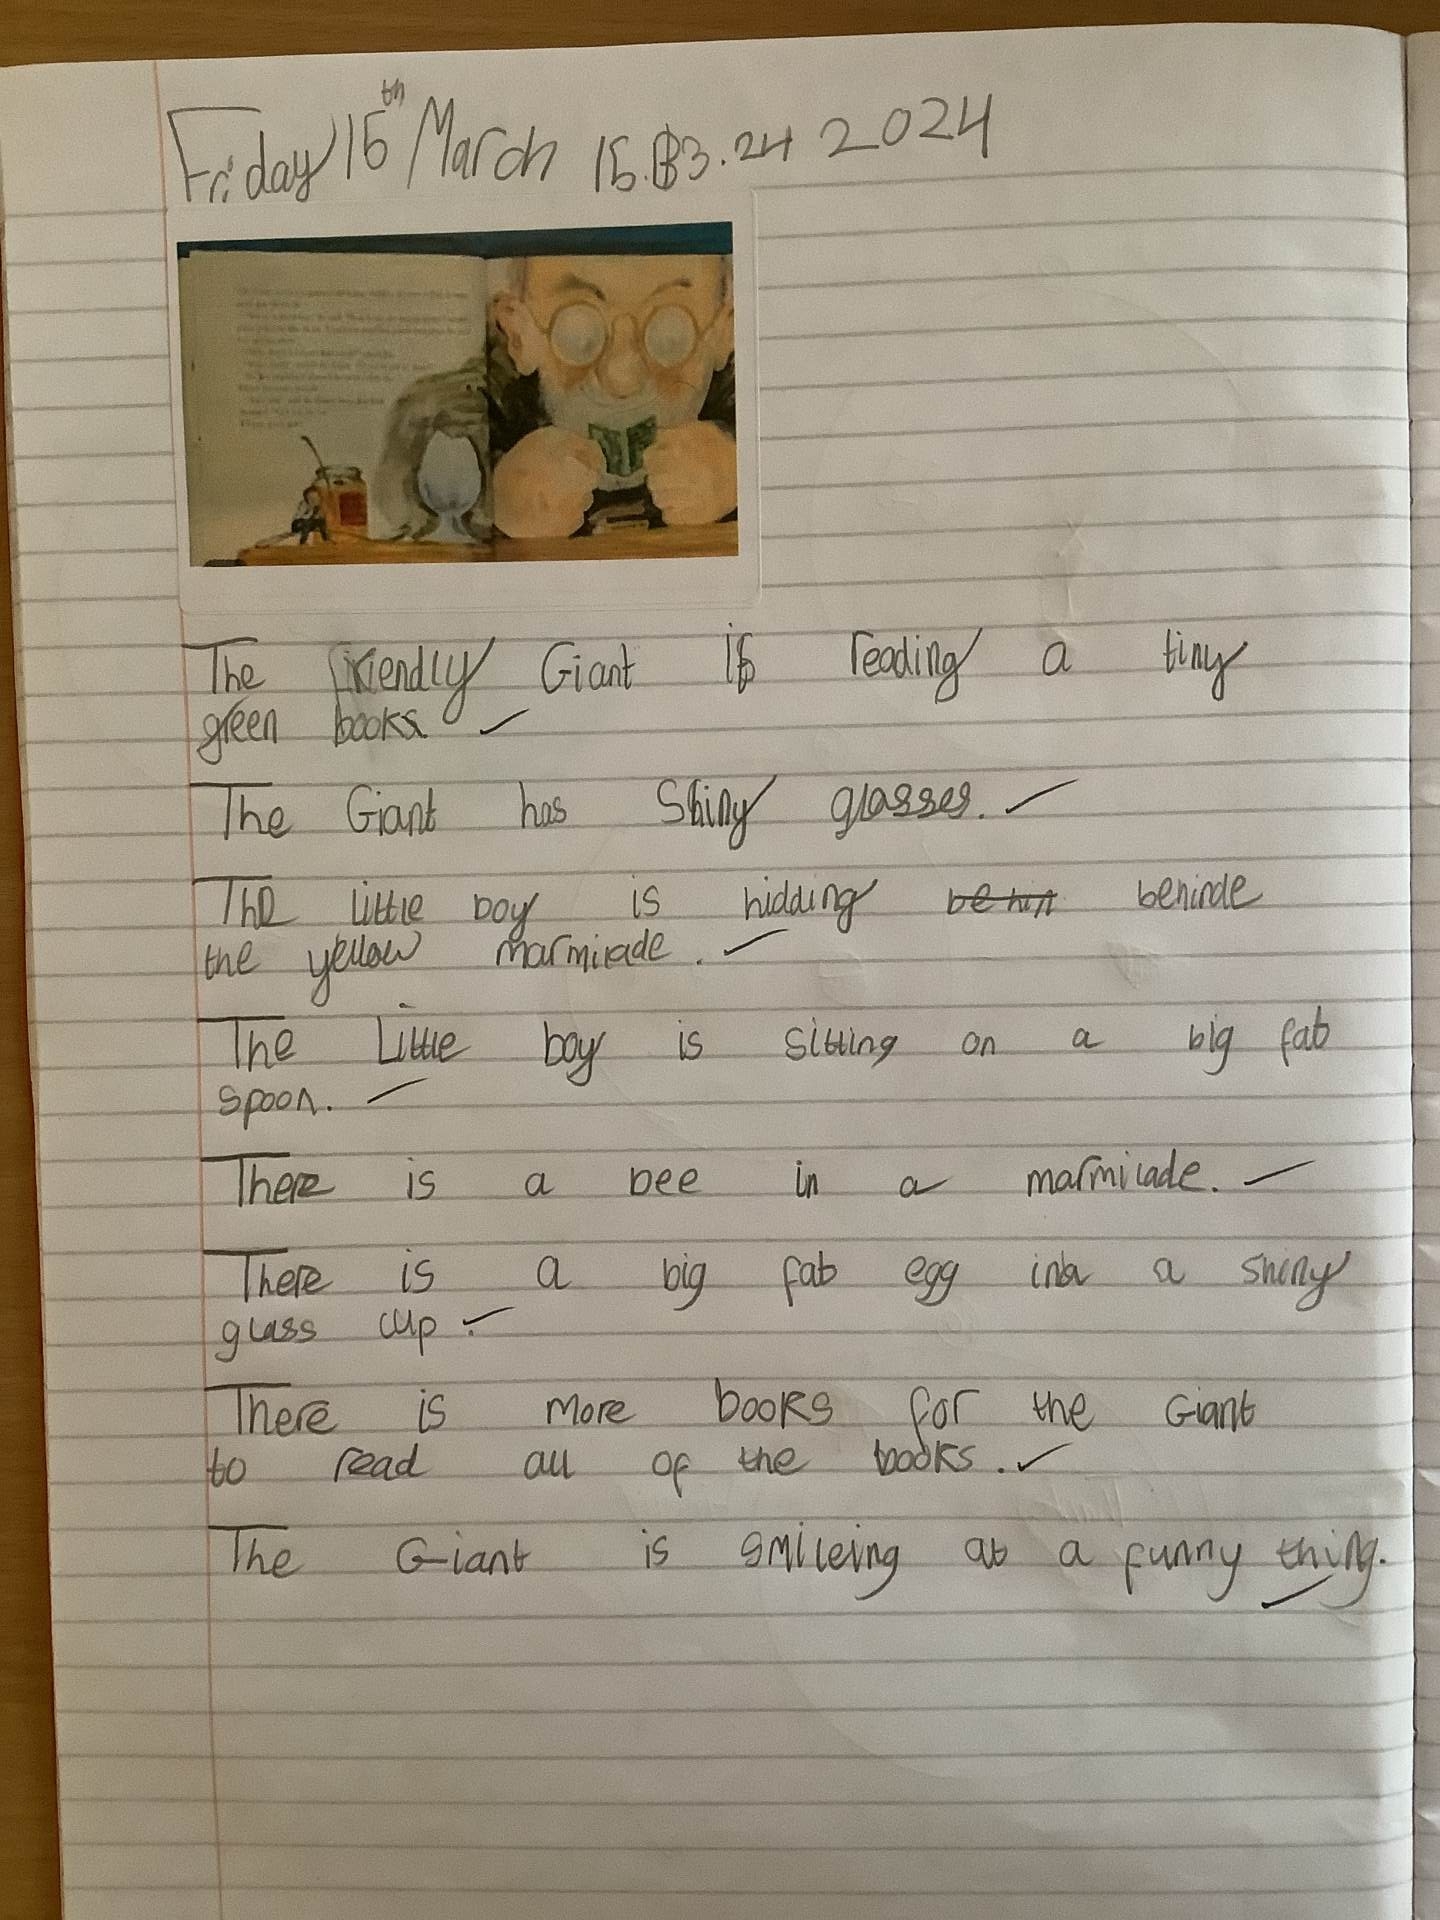 Friday 15th March 15.03.24 2024
The friendly Giant is reading a tiny
green books.
The Giant has Shiny glasses.
The little boy is hidding behin behinde
the yellow marmilade.
The Little boy is sitting on a big fat
spoon.
There is a bee in a marmilade.
There is a big fat egg in a shiny
glass cup.
There is more books for the Giant
to read all of the books.
The Giant is smileing at a funny thing.